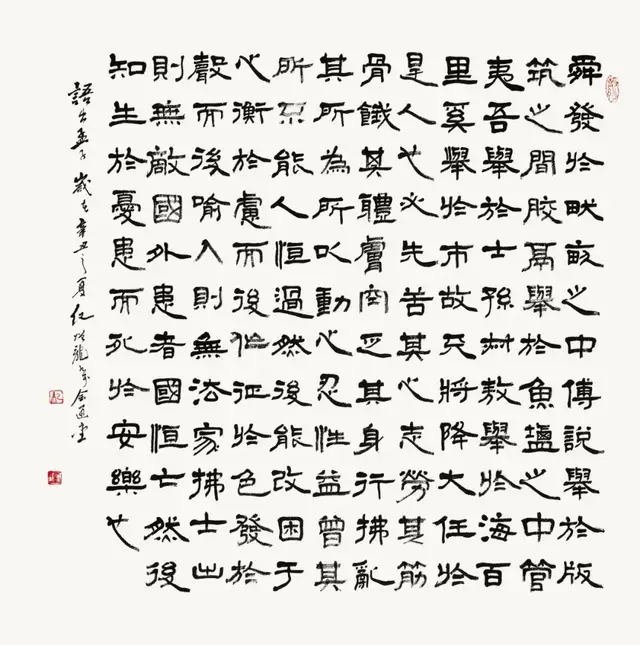 舜發於畎畝之中傅說舉於版
筑之間膠鬲舉於魚鹽之中管
夷吾舉於士孫叔敖舉於海百
里奚舉於市故天將降大任於
是人也必先苦其心志勞其筋
骨餓其體膚空乏其身行拂亂
其所為所以動心忍性益曾其
所不能人恒過然後能改困于
心衡於慮而後作征於色發於
聲而後喻入則無法家拂士出
則無敵國外患者國恒亡然後
知生於憂患而死於安樂也
語出孟子歲在辛丑之夏